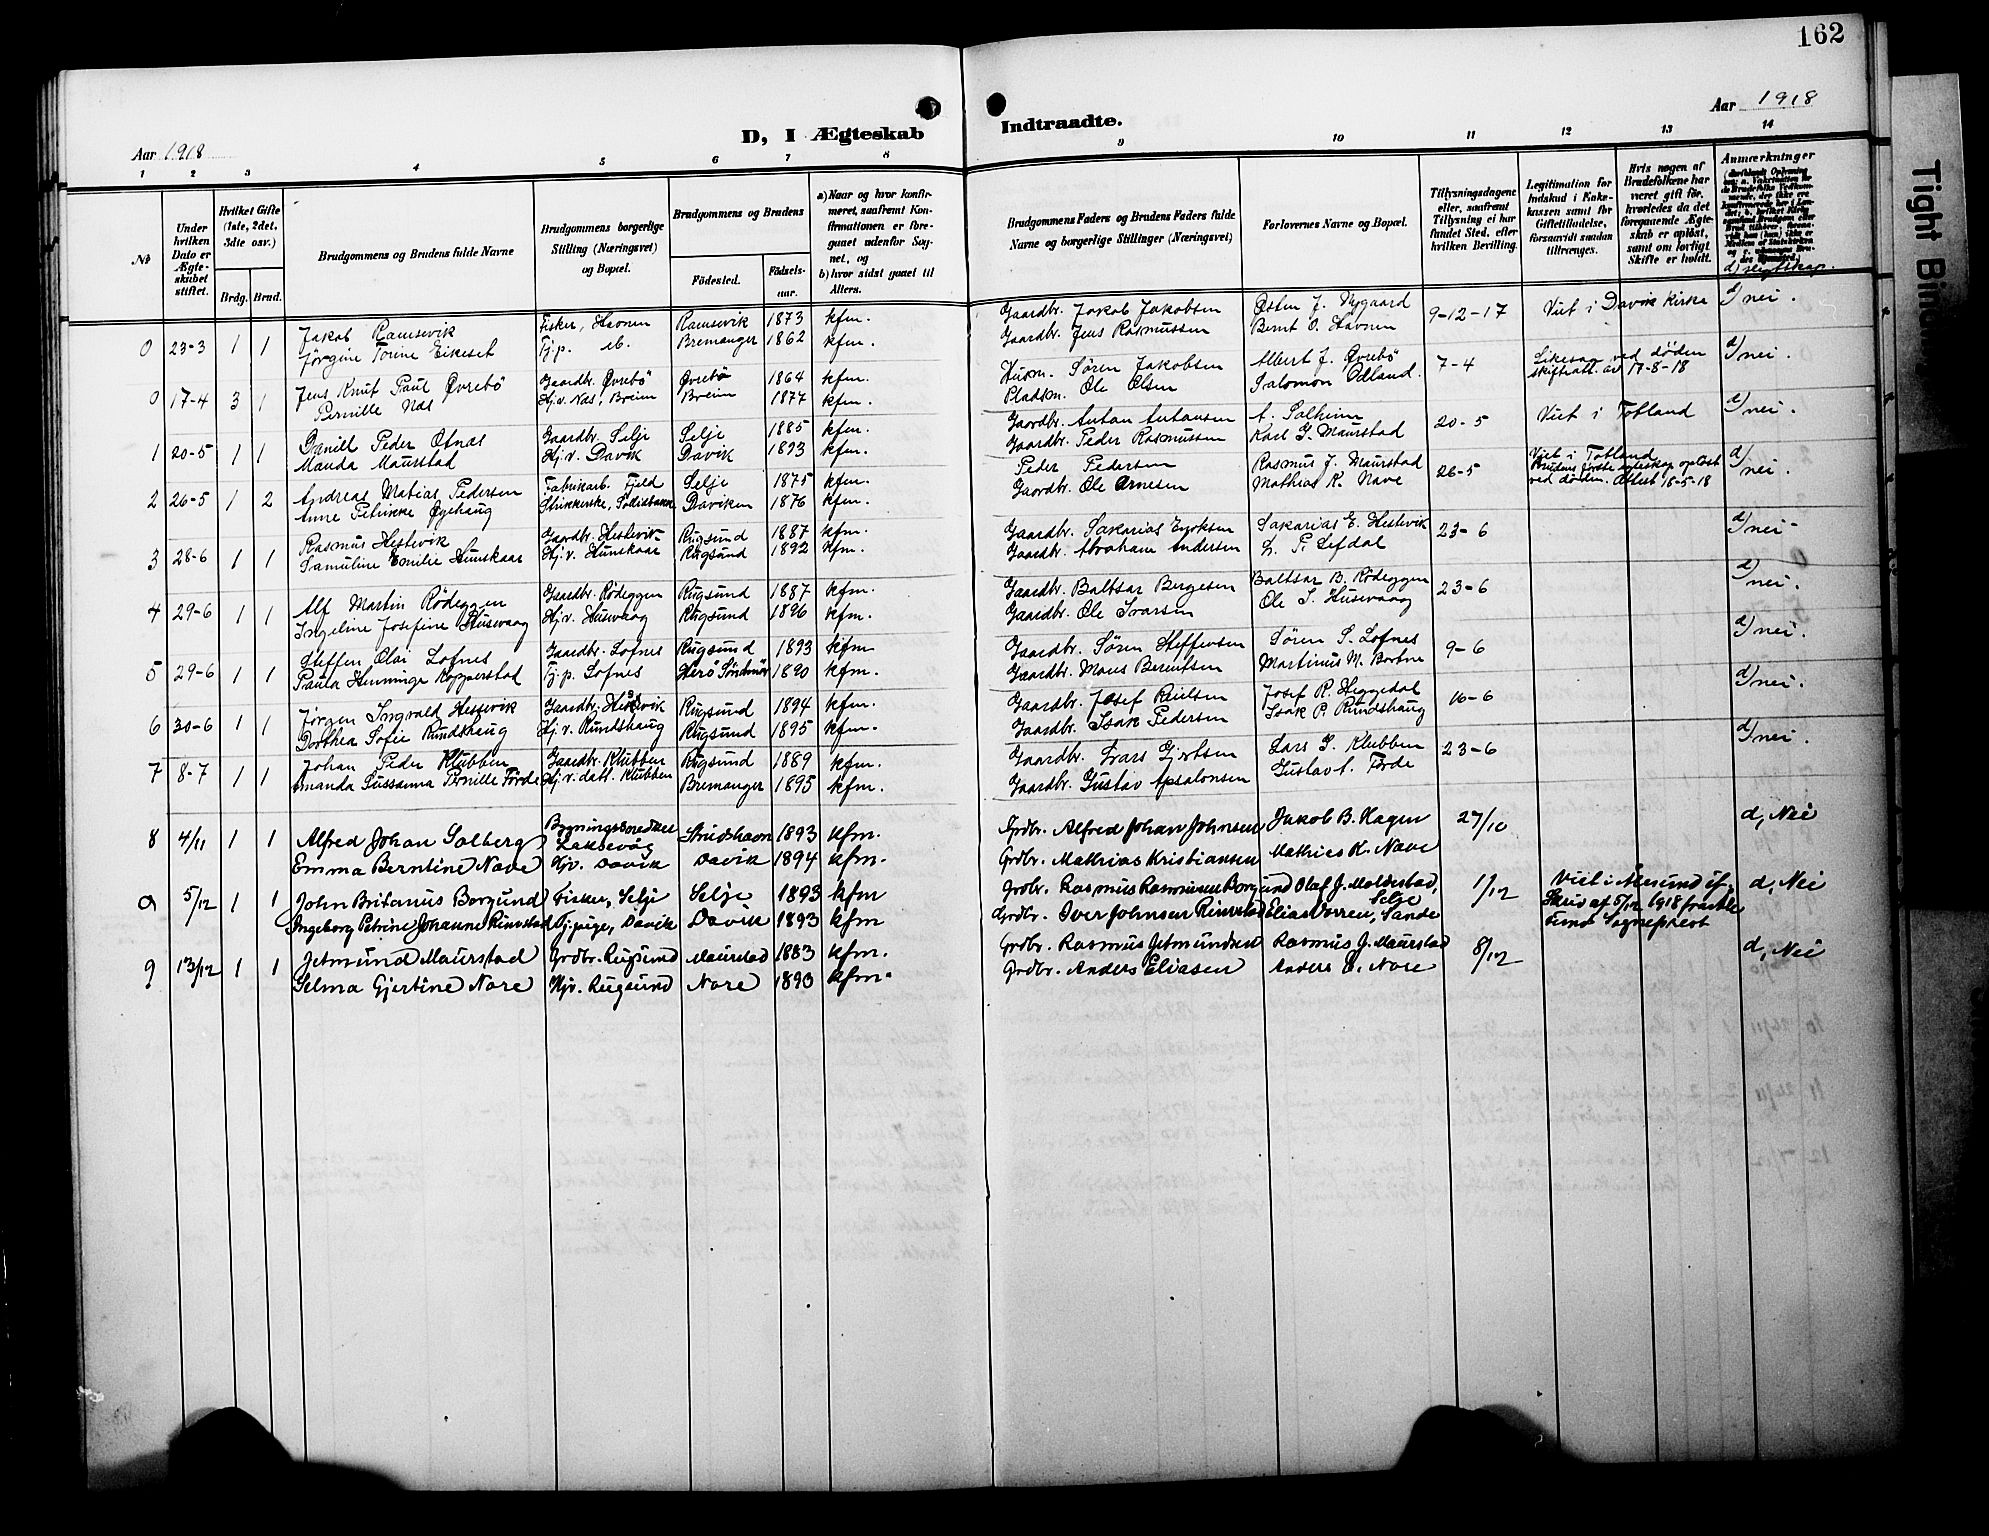 162
Aar 1918
D, I Ægteskab
Indtraadte.
Aar 1918
1 2 3 4 5 6 7 8
9 10 11 12 13 14
No
Under hvilken Dato er Ægteskabet stiftet.
Hvilket Gifte (1ste, 2det, 3dte osv.)
Brdg. Brud.
Brudgommens og Brudens fulde Navne
Brudgommens borgerlige Stilling (Næringsvei) og Bopæl.
Brudgommens og Brudens
Fødested.
Fødselsaar.
a) Naar og hvor konfirmeret, saafremt Konfirmationen er foregaaet udenfor Sognet, og
b) hvor sidst gaaet til Alters.
Brudgommens Faders og Brudens Faders fulde Navne og borgerlige Stillinger (Næringsvei)
Forlovernes Navne og Bopæl.
Tillysningsdagene eller, saafremt Tillysning ei har fundet Sted, efter hvilken Bevilling.
Legitimation for Indskud i Enkekassen samt for Giftetilladelse, forsaavidt saadan tiltrænges.
Hvis nogen af Brudefolkene har været gift før, hvorledes da det foregaaende Ægteskab er opløst, samt om lovligt Skifte er holdt.
Anmærkninger
d) slegtskap.
0 23-3 1 1 Jakob Ramsevik Fisker, Havnen Ramsevik 1873 kfm. Gaardbr. Jakob Jakobsen Østen J. Nygaard 9-12-17 Viet i Davik Kirke d) nei.
Jørgine Torine Eikeset Tj.p. ib. Bremanger 1862 kfm. Gaardbr. Jens Rasmussen Bernt O. Havnen
0 17-4 3 1 Jens Knut Paul Øvrebö Gaardbr. Øvrebö Øvrebö 1864 kfm. Husm. Søren Jakobsen Albert J. Øvrebö 7-4 Likesaa ved døden d) nei.
Pernille Nås Hj.v. Nås, Breim Breim 1877 kfm. Pladsm. Ole Olsen Salomon Ødland. skifteatt. av 17-8-18
1 20-5 1 1 Daniel Peder Otnæs Gaardbr. Selje Selje 1885 kfm. Gaardbr. Antan Antonsen A. Salheim 20-5 Viet i Totland d) nei.
Manda Maurstad Hj.v. Davik Davik 1893 kfm. Gaardbr. Peder Rasmussen Karl G. Maurstad
2 26-5 1 2 Andreas Matias Pedersen Fabrikarb. Fjeld Selje 1875 kfm. Peder Pedersen Rasmus J. Maurstad 26-5 Viet i Totland d) nei.
Anne Petrikke Øyehaug Strikkerske, Daviken 1876 kfm. Gaardbr. Ole Arnesen Mathias R. Nave Brudens første egteskap opløst ved døden. Attest 18-5-18
3 28-6 1 1 Rasmus Hestevik Gaardbr. Hestevik Rugsund 1887 kfm. Gaardbr. Sakarias Eriksen Sakarias E. Hestevik 23-6 d) nei
Samuline Emilie Hunskaar Hj.v. Hunskaar Rugsund 1892 kfm. Gaardbr. Abraham Andersen L. P. Lefdal
4 29-6 1 1 Alf Martin Rödeggen Gaardbr. Rödeggen Rugsund 1887 kfm. Gaardbr. Baltsar Bergesen Baltsar B. Rödeggen 23-6 d) nei.
Ingeline Josefine Husevaag Hj.v. Husevaag Rugsund 1896 kfm. Gaardbr. Ole Ivarsen Ole I. Husevaag
5 29-6 1 1 Steffen Olai Lofnes Gaardbr. Lofnes Rugsund 1893 kfm Gaardbr. Søren Steffensen Søren S. Lofnes 9-6 d) nei.
Paula Henninge Kopperstad Tj.p. Lofnes Herö Söndmör 1890 kfm. Gaardbr. Mons Berentsen Martinus M. Bortne
6 30-6 1 1 Jørgen Ingvald Hestevik Gaardbr. Hestevik Rugsund 1894 kfm. Gaardbr. Josef Josef R. Heggedal 16-6 d) nei.
Dorthea Sofie Rundshaug Hj.v. Rundshaug Rugsund 1895 kfm. Gaardbr. Isak Pedersen Isak P. Rundshaug
7 8-7 1 1 Johan Peder Klubben Gaardbr. Klubben Rugsund 1889 kfm. Gaardbr. Lars Gjertsen Lars G. Klubben 23-6 d) nei.
Amanda Sussanna Pernille Förde Hj.v. datt. Klubben Bremanger 1895 kfm. Gaardbr. Gustav Apsalonsen Gustav A. Förde
8 4/11 1 1 Alfred Johan Solberg Laksevåg 1893 kfm. Grdbr. Alfred Johan Johnsen Jakob B. Hagen 27/10 d, Nei
Emma Berntine Nave Hjv. Davik Davik 1894 kfm. Grdbr. Mathias Kristiansen Mathias K. Nave
9 5/12 1 1 John Britanus Borgund Fisker, Selje Selje 1893 kfm Grdbr. Rasmus Rasmussen Borgund Olaf J. Moldestad, Selje 1/12 Viet i Aalesund if. d, Nei
Ingeborg Petrine Johanne Rimstad Tj.pige, Davik Davik 1893 kfm Grdbr. Iver Johnsen Rimstad Elias Vorren, Sande Skriv af 5/12 1918 fra Sogneprest
9 13/12 1 1 Jetmund Maurstad Grdbr. Rugsund Maurstad 1883 kfm. Grdbr. Rasmus Jetmundsen Rasmus J. Maurstad 8/12 d, Nei
Selma Gjertine Nore Hjv. Rugsund Nore 1890 kfm. Grdbr. Anders Eliasen Anders E. Nore
Tight Bin